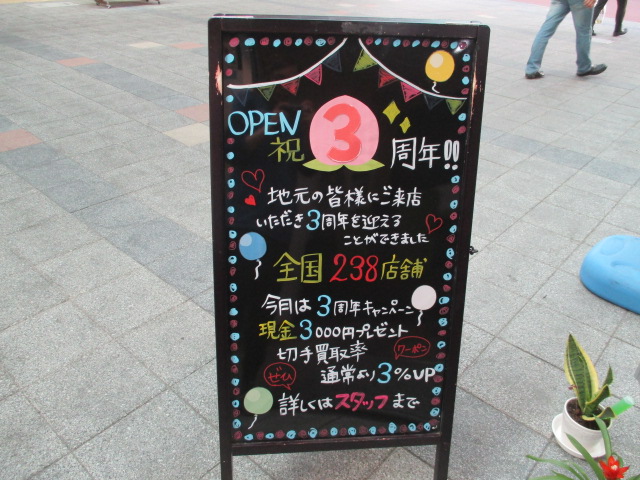 OPEN
祝 3 周年!!
地元の皆様にご来店
いただき3周年を迎える
ことができました
全国 238店舗
今月は3周年キャンペーン
現金3000円プレゼント
切手買取率
クーポン
ぜひ
通常より3%UP
詳しくはスタッフまで